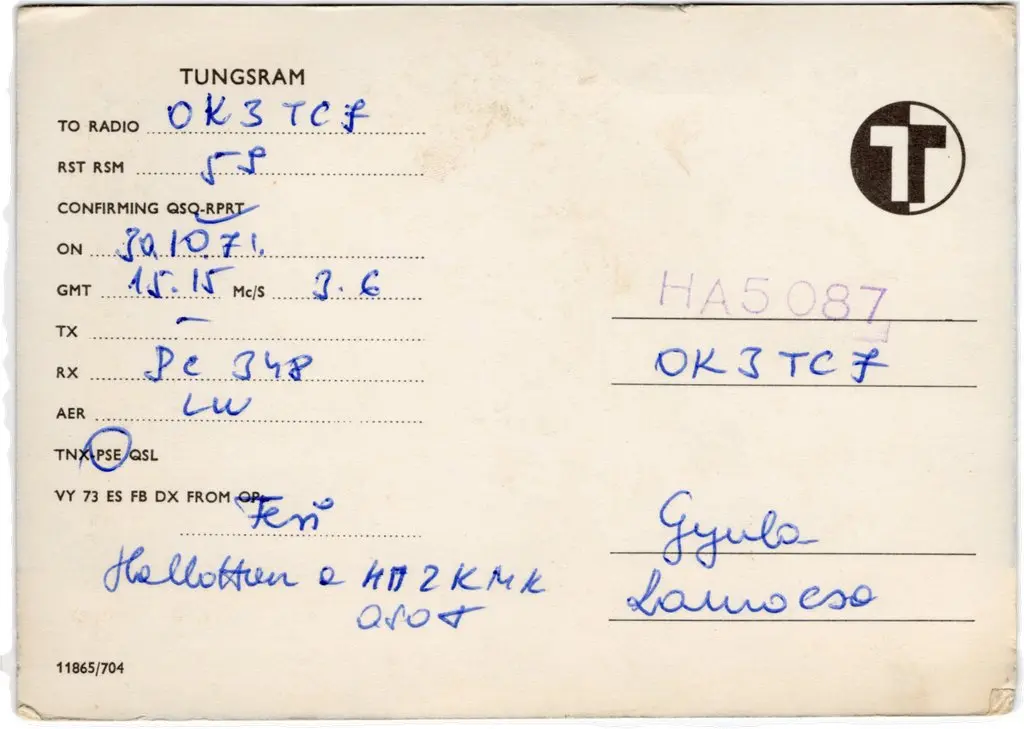 TUNGSRAM
TO RADIO OK3TCF
RST RSM 58
CONFIRMING QSO-RPRT
ON 30.10.71.
GMT 15.15 Mc/S 3.6
TX –
RX 348
AER LW
TNX-PSE QSL
VY 73 ES FB DX FROM OP:
Feri
Hallottam a HA2KMK
QSOT
11865/704
T
HA5 087
OK3TCF
Gyula